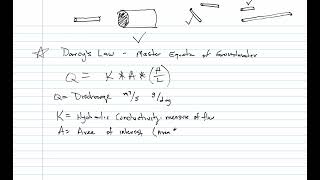 Darcy's Law - Master Equation of Groundwater
Q = K * A * (H/L)
Q = Discharge m³/s g/day
K = Hydraulic Conductivity: measure of flow
A = Area of interest (Area *